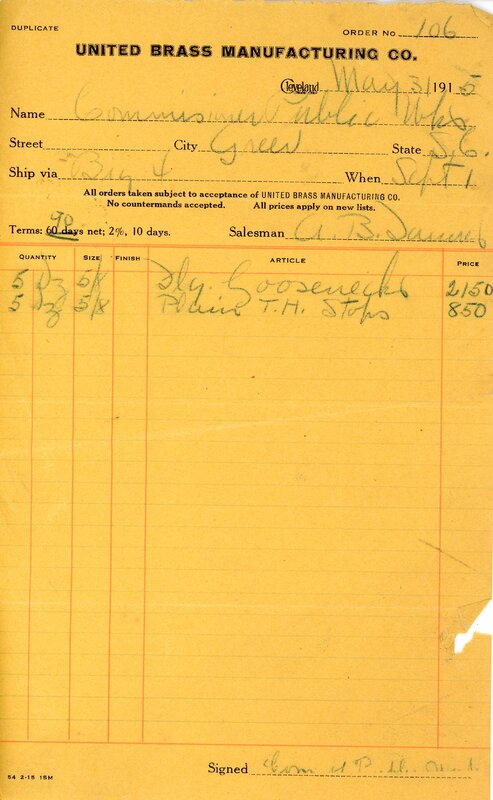 DUPLICATE
ORDER No 106
UNITED BRASS MANUFACTURING CO.
Cleveland May 31 1915
Name Commissioner Public Wks
Street City Greer State S.C.
Ship via Big 4 When Sept 1
All orders taken subject to acceptance of UNITED BRASS MANUFACTURING CO.
No countermands accepted. All prices apply on new lists.
Terms: 60 days net; 2%, 10 days. Salesman A. B.
90
QUANTITY SIZE FINISH ARTICLE PRICE
5 Dz 5/8 Goosenecks 2150
5 Dz 5/8 Plain T.H. Stops 850
Signed Com of P.
54 2-15 15M